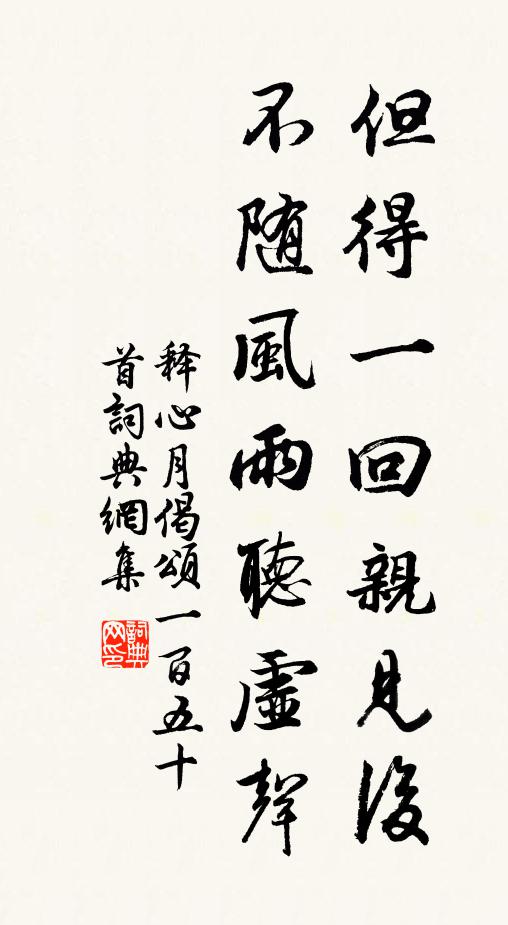 但得一回親見後
不随風雨聽虛聲
释心月偈頌一百五十
首詞典網集
詞典网印